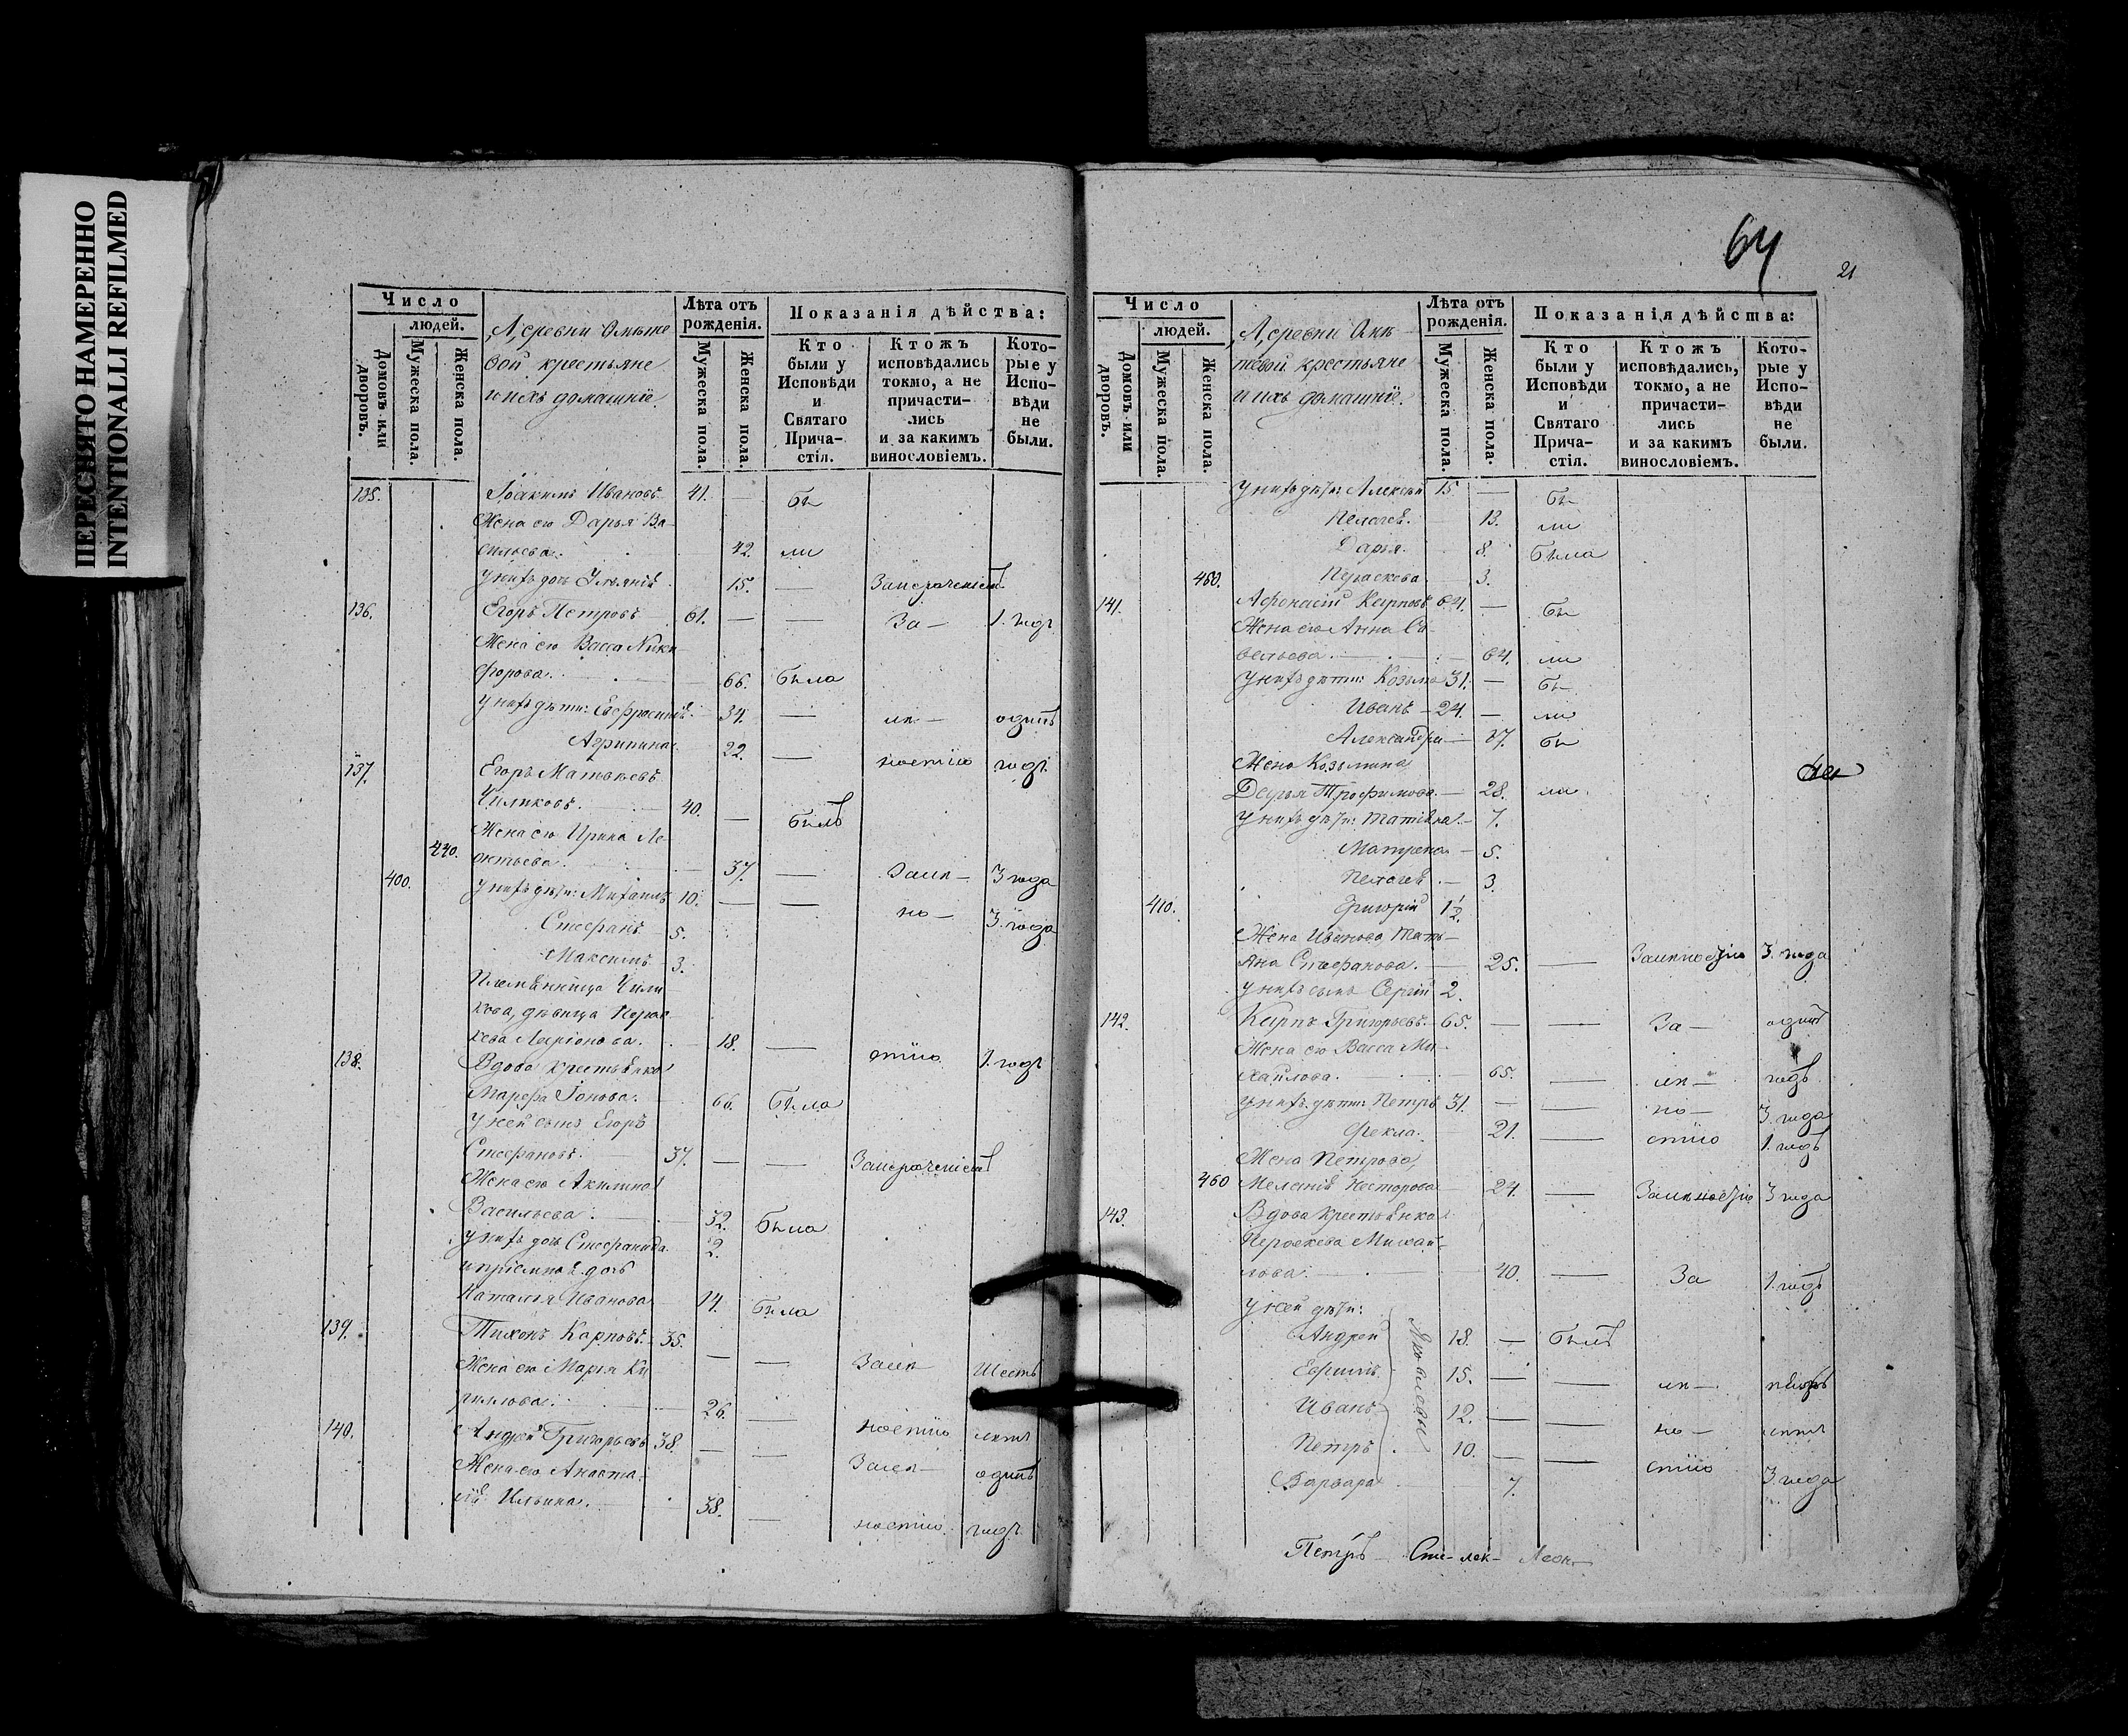 ПЕРЕСНЯТО НАМЕРЕННО
INTENTIONALLI REFILMED
Число
людей.
Домовъ или дворовъ.
Мужеска пола.
Женска пола.
Деревни
вой крестьяне
и ихъ домашніе.
Лѣта отъ рожденія.
Мужеска пола.
Женска пола.
Показанія дѣйства:
Кто были у Исповѣди и Святаго Прича-стія.
Ктожъ исповѣдались токмо, а не причасти-лись и за какимъ винословіемъ.
Кото-рые у Испо-вѣди не были.
135. Іоакимъ Ивановъ 41. — бы
Жена его Дарья Ва-
сильева. 42. ли
У нихъ дочь 15. —
136. Егоръ Петровъ 61. — — За — 1. годъ
Жена его Васса Ники
форова. 66. была
У нихъ дѣти: Евфросинія 34. — лѣ — одинъ
Агрипина 22. — ностію годъ
137. Егоръ Матвѣевъ
Чиликовъ. 40. — былъ
Жена его Ирина Ле-
440. онтьева. 37. — Залѣ — 3 года
400. У нихъ дѣти: Михаилъ 10. — — но — 3. года
Стефанъ 5.
Максимъ 3.
Племянница Чили
кова, дѣвица Парас
кева Ларіонова. 18. — стію 1. годъ
138. Вдова крестьянка
Марфа Іонова. 66. была
У ней сынъ Егоръ
Стефановъ. 37. — —
Жена его Акилина
Васильева. 32. была
У нихъ дочь Стефанида 2.
и пріемная дочь
Наталья Иванова 14. была
139. Тихонъ Карповъ. 35. — — Залѣ Шесть
Жена его Марья Ки
риллова. 26. — ностію лѣтъ
140. Андрей Григорьевъ 38. — — Залѣ — одинъ
Жена его Анаста-
сія Ильина. 38. — ностію годъ
64
21
Число
людей.
Домовъ или дворовъ.
Мужеска пола.
Женска пола.
Деревни
тевой крестьяне
и ихъ домашніе.
Лѣта отъ рожденія.
Мужеска пола.
Женска пола.
Показанія дѣйства:
Кто были у Исповѣди и Святаго Прича-стія.
Ктожъ исповѣдались, токмо, а не причасти-лись и за какимъ винословіемъ.
Кото-рые у Испо-вѣди не были.
У нихъ дѣти: Алексѣй 15 — бы
Пелагея. 13. ли
Дарья. 8. была
450. Параскева 3.
141. Афонасій Карповъ 64. — бы
Жена его Анна Са
вельева. 64. ли
У нихъ дѣти: Козьма 31. — бы
Иванъ 24. — ли
Александра 17. бы
Жена Козьмина
Дарья Трофимова. 28. ли
У нихъ дѣти: Татіяна 7.
Матрена 5.
Пелагея 3.
410. Григорій 1½
Жена Иванова Тать-
яна Стефанова. 25. — Залѣностію 3. года
У нихъ сынъ Сергій 2.
142. Карпъ Григорьевъ. 65. — — За — одинъ
Жена его Васса Ми-
хайлова. 65. — лѣ — годъ
У нихъ дѣти: Петръ 31. — — но — 3. года
Фекла. 21. — стію 1. годъ
Жена Петрова,
460 Меланія Несторова 24. — Залѣностію 3 года
143. Вдова крестьянка
Параскева Михай-
лова. 40. — За 1. годъ
У ней дѣти:
Андрей 18. — былъ
Ефимъ 15. — — лѣ —
Иванъ 12. — — но — лѣтъ
Петръ 10. — — стію 3. года
Яковлевы
Варвара 7.
Петръ